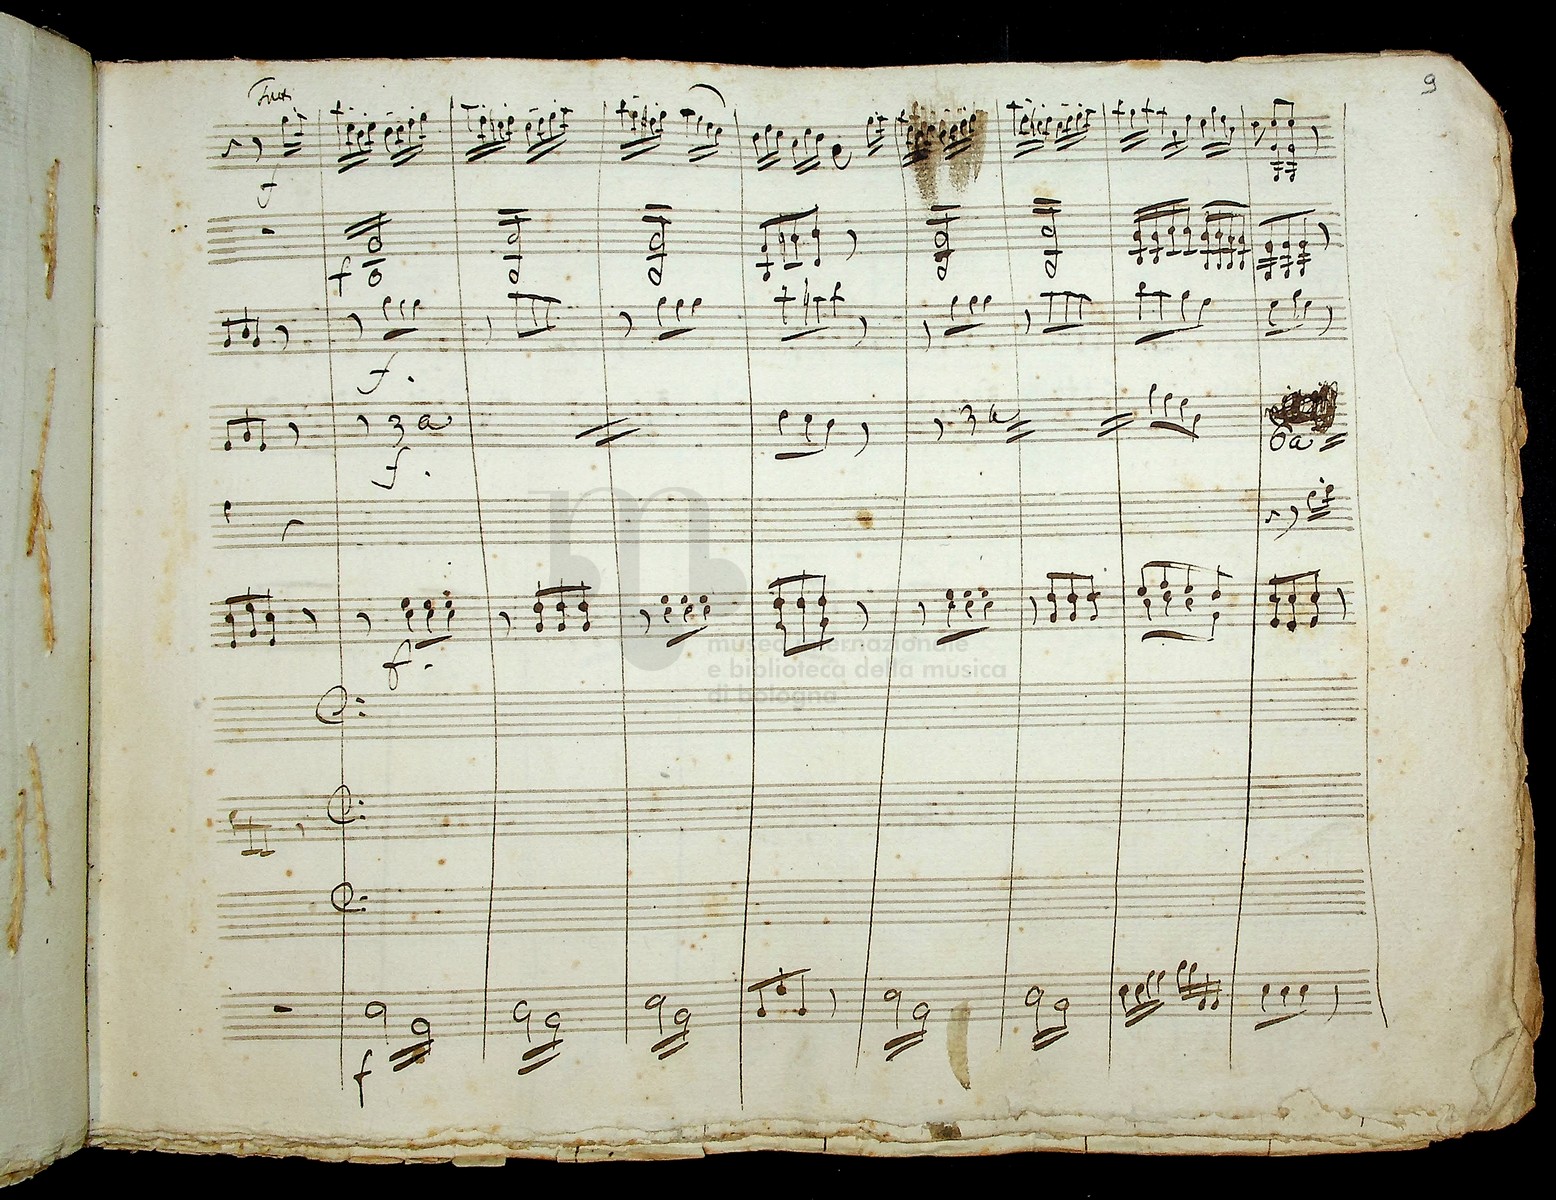 9
Tutti
f
f
f.
3a
3a
6a
f.
f.
museo internazionale
e biblioteca della musica
di bologna
f